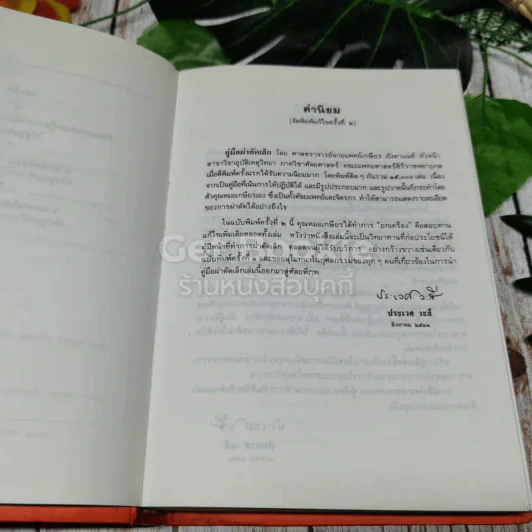 คำนิยม
(จัดพิมพ์แก้ไขครั้งที่ ๒)
คู่มือผ่าตัดเล็ก โดย ศาสตราจารย์นายแพทย์เกษียร ภังคานนท์ หัวหน้า
สาขาวิชาอุบัติเหตุวิทยา ภาควิชาศัลยศาสตร์ คณะแพทยศาสตร์ศิริราชพยาบาล
เมื่อตีพิมพ์ครั้งแรกได้รับความนิยมมาก โดยพิมพ์ติด ๆ กันรวม ๑๕,๐๐๐ เล่ม เนื่อง
จากเป็นคู่มือที่เน้นการให้ปฏิบัติได้ และมีรูปประกอบมาก และรูปวาดนั้นก็กระทำโดย
ตัวคุณหมอเกษียรเอง ซึ่งเป็นทั้งศัลยแพทย์และจิตรกร ทำให้สามารถแสดงรายละเอียด
ของการผ่าตัดได้อย่างถึงใจ
ในฉบับพิมพ์ครั้งที่ ๒ นี้ คุณหมอเกษียรได้ทำการ "ยกเครื่อง" คือสอบทาน
แก้ไขเพิ่มเติมตลอดทั้งเล่ม หวังว่าหนังสือเล่มนี้จะเป็นวิทยาทานที่ก่อประโยชน์ให้
ผู้มีหน้าที่ทำการผ่าตัดเล็ก ตลอดจนผู้ได้รับบริการ อย่างกว้างขวางเช่นเดียวกับ
ฉบับพิมพ์ครั้งที่ ๑ และขออนุโมทนาในกุศลกรรมของทุก ๆ คนที่เกี่ยวข้องในการนำ
คู่มือผ่าตัดเล็กเล่มนี้ออกมาสู่ศัลยพิภพ
ร้านหนังสือบุคกี้
ประเวศ วะสี
ประเวศ วะสี
สิงหาคม ๒๕๓๑